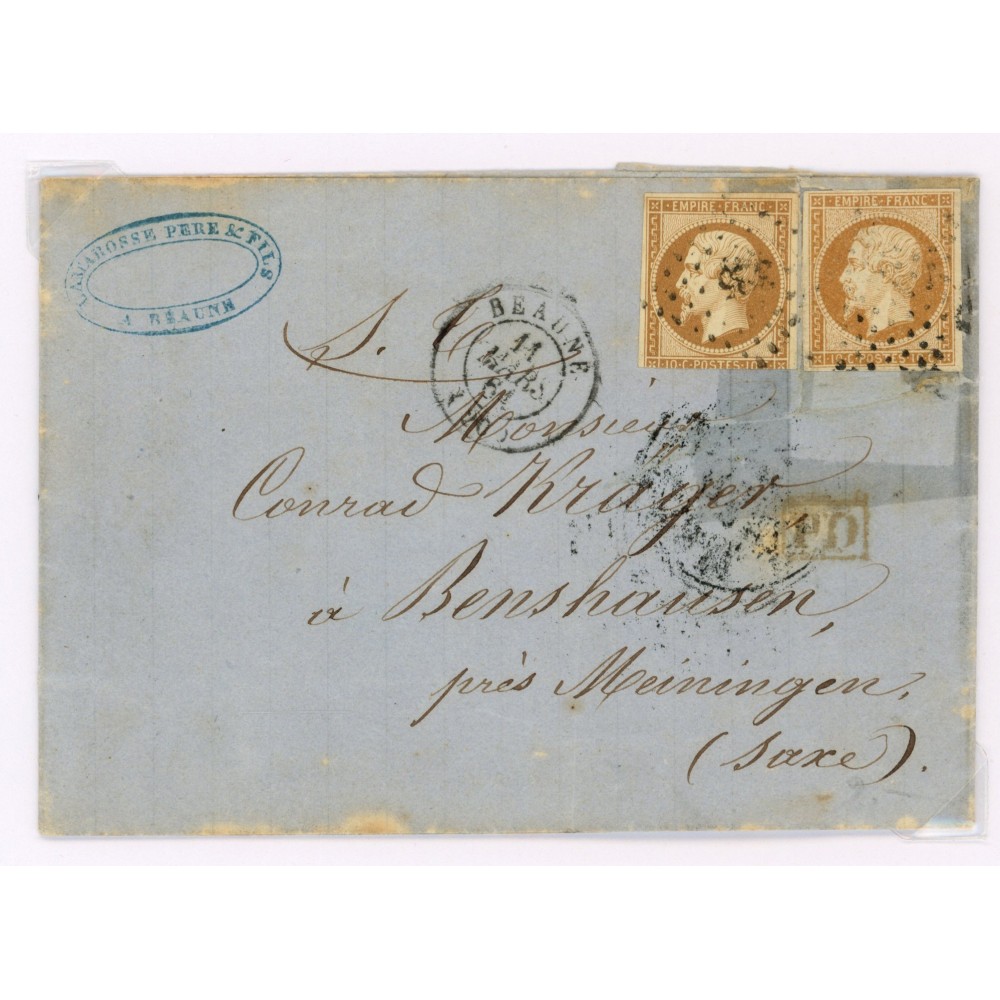 PERE & FILS
A BEAUNE
EMPIRE-FRANC
10·C·POSTES·10
EMPIRE-FRANC
10·C·POSTES·10
BEAUNE
11
MARS
Monsieur
Conrad Krayer,
à Benshausen,
près Meiningen,
(Saxe).
PD